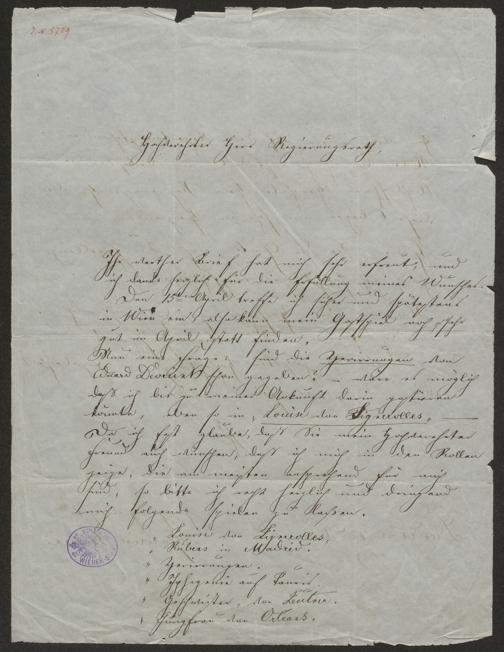 J.N. 5729
Hochverehrter Herr Regierungsrath,
Ihr werther Brief hat mich sehr erfreut, und
ich danke herzlich für die Erfüllung meines Wunsches.
Den 10ten April treffe ich sicher und spätestens
in Wien ein, also kann mein Gastspiel noch sehr
gut im April statt finden.
Nun eine Frage: sind die Verirrungen von
Eduard Devrient schon gegeben? — wäre es möglich
daß ich bis zu meiner Ankunft darin gastieren
könnte, eben so in, Louise von Lignerolles, —
Da ich fest glaube, daß Sie mein hochverehrter
Freund auch wünschen, daß ich mich in den Rollen
zeige, die am meisten ansprechend für mich
sind, so bitte ich recht herzlich und dringend
mich folgende spielen zu lassen.
Louise von Lignerolles,
" Rubens in Madrid.
" Verirrungen.
" Iphigenie auf Tauris.
" Geschwister, von
" Jungfrau von Orleans.
WIEN